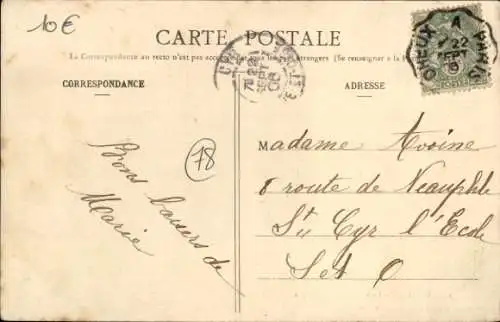 10€
CARTE POSTALE
La Correspondance au recto n'est pas acceptée par tous les pays étrangers (Se renseigner à la
CORRESPONDANCE
ADRESSE
78
Bons baisers de
Marie
Madame Avoine
8 route de Neauphle
St Cyr l'Ecole
Set O
A PARIS
22